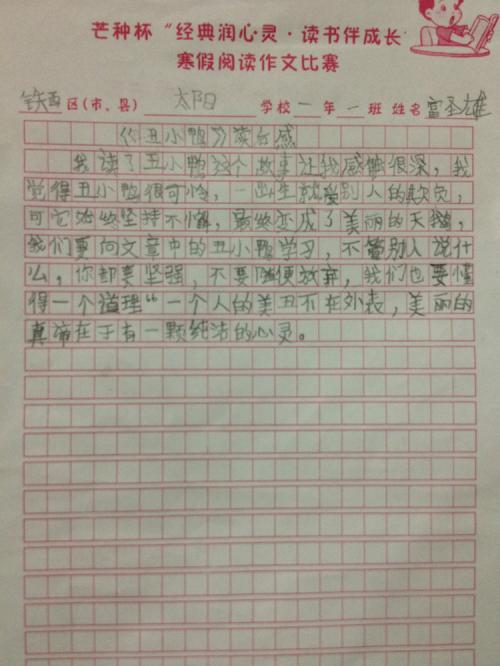 芒种杯“经典润心灵·读书伴成长”
寒假阅读作文比赛
铁西区(市、县) 太阳 学校 一 年 一 班 姓名 富圣雄
《丑小鸭》读后感
我读了丑小鸭这个故事让我感触很深,我
觉得丑小鸭很可怜,一出生就受别人的欺负,
可它始终坚持不懈,最终变成了美丽的天鹅,
我们要向文章中的丑小鸭学习,不管别人说什
么,你都要坚强,不要随便放弃,我们也要懂
得一个道理“一个人的美丑不在外表,美丽的
真谛在于有一颗纯洁的心灵。